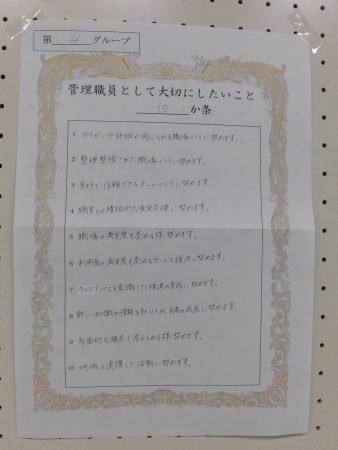 第 4 グループ
管理職員として大切にしたいこと
10 か条
1 やりがいや評価が感じられる職場づくりに努めます。
2 整理整頓された職場づくりに努めます。
3 良好で信頼できるチームづくりに努めます。
4 職員との積極的な意見交換に努めます。
5 職場の満足度を高める様努めます。
6 利用者の満足度を高めるサービス提供に努めます。
7 キャリアパスを意識した後進の育成に努めます。
8 新しい知識や情報を取り入れ、自身の成長に努めます。
9 多面的な視点で考えられる様努めます。
10 地域と連携した活動に努めます。